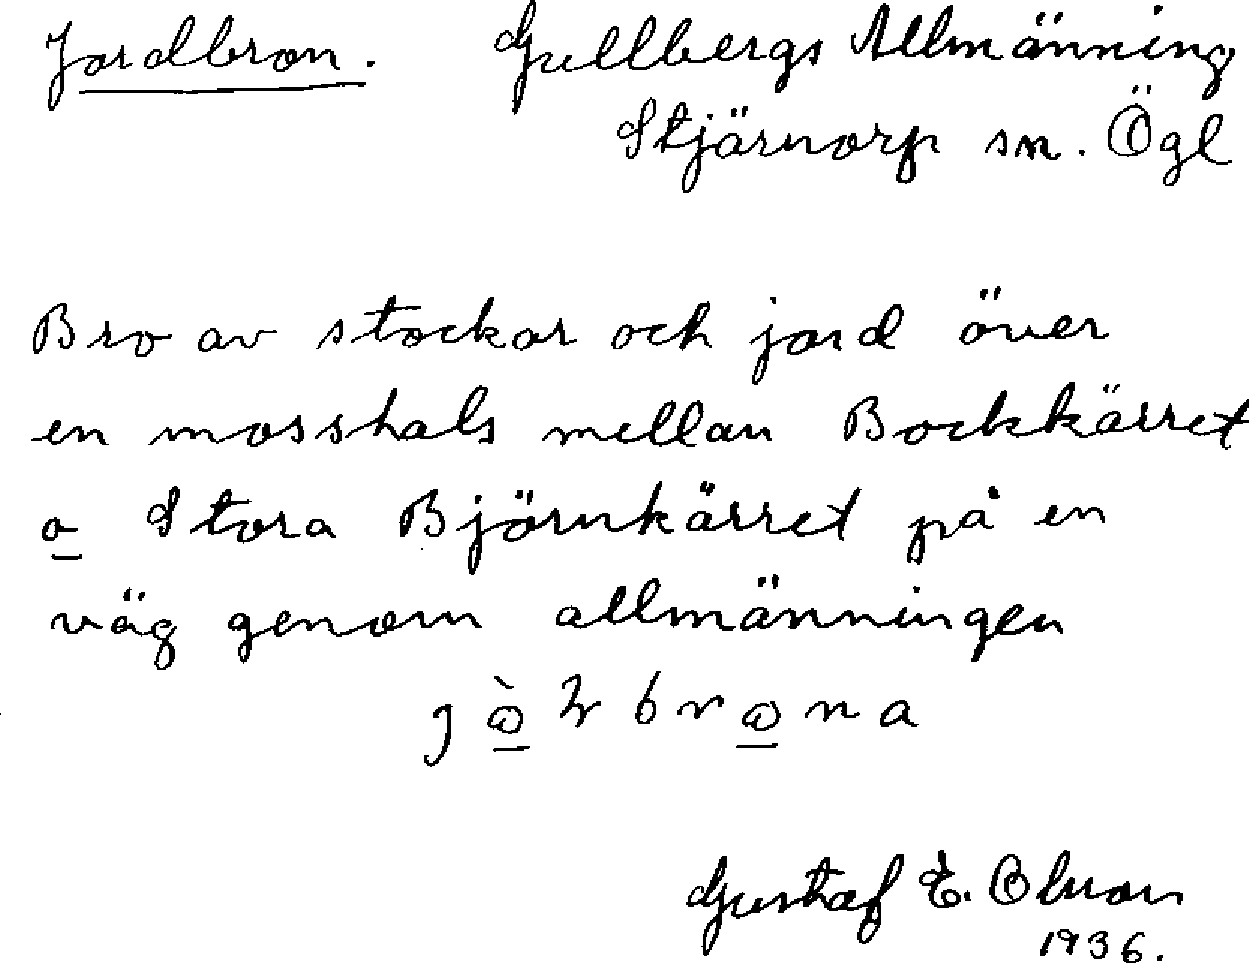 Jordbron. Gullbergs Allmänning
Stjärnorp sn. Ögl
Bro av stockar och jord över
en mosshals mellan Bockkärret
o Stora Björnkärret på en
väg genom allmänningen
Gustaf E. Olson
1936.